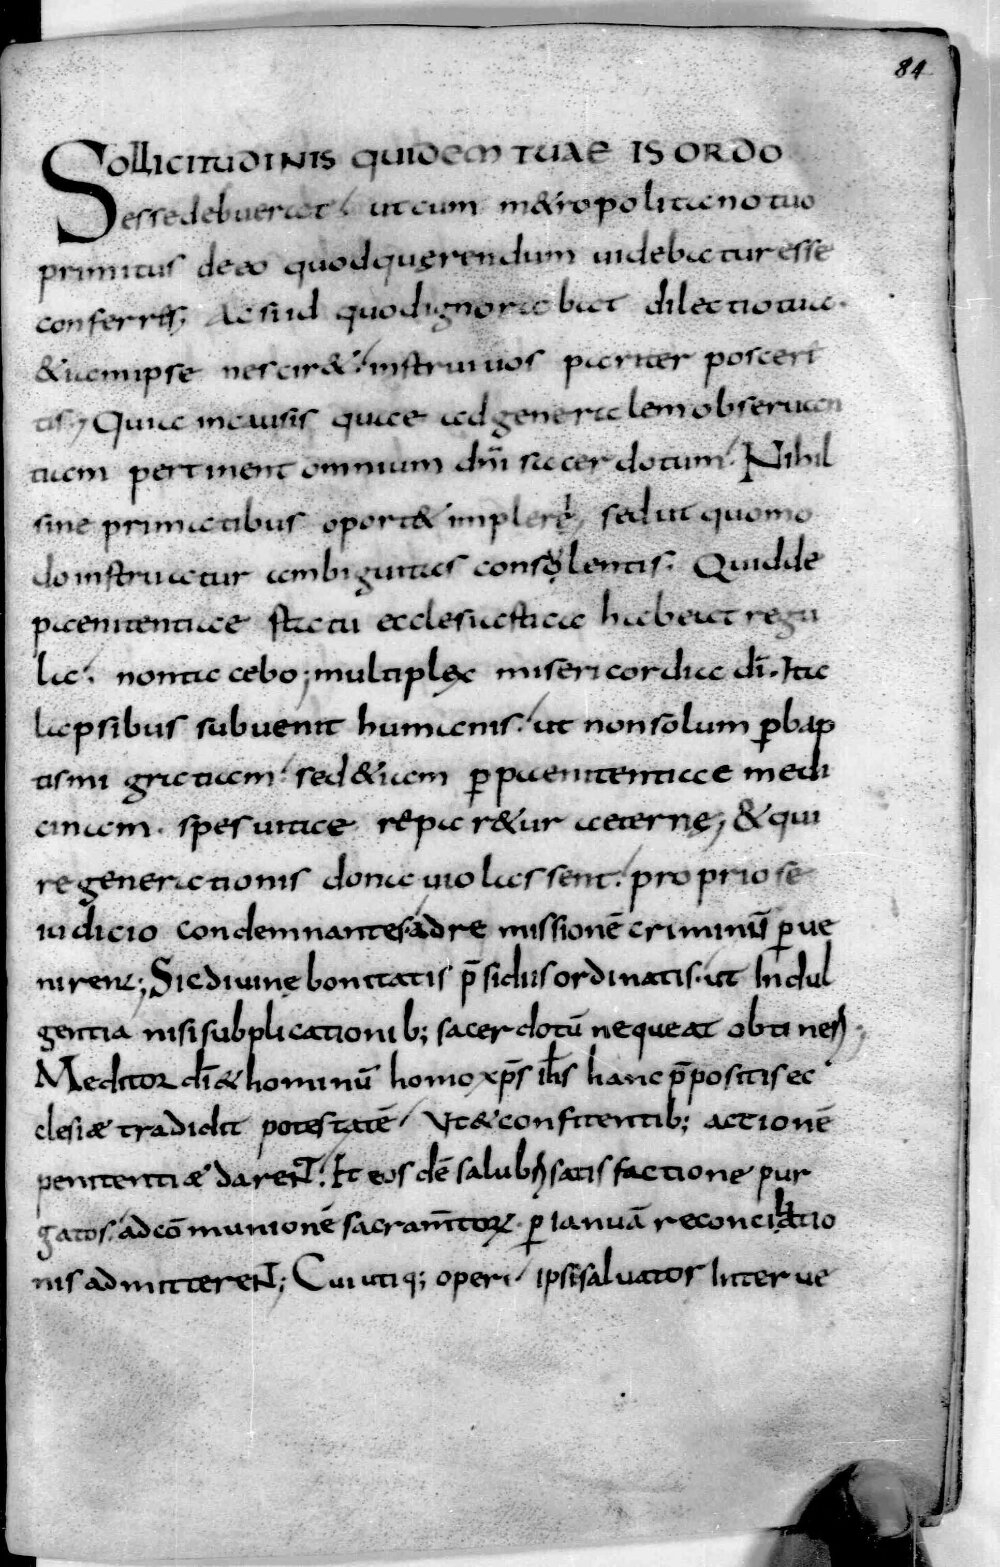 84
SOLLICITUDINIS QUIDEM TUAE IS ORDO
esse debuerat ut cum m&ropolitano tuo
primitus de eo quod querendum uidebatur esse
conferres; Ac si id quod ignorabat dilectio tua.
&iam ipse nescir&. instrui uos pariter posceri
tis; Quia in causis quae ad generalem obseruan
tiam pertinent omnium dn̄i sacerdotum. Nihil
sine primatibus oport& implere, sed ut quomo
do instruatur ambiguitas consolentis. Quid de
paenitentiae statu ecclesiastica habeat regu
la. non tacebo; multiplex misericordia dī. Ita
lapsibus subuenit humanis. ut non solum ꝑ bap
tismi gratiam. sed &iam ꝑ paenitentiae medi
cinam. spes uitae repar&ur aeternę, & qui
regenerationis dona uiolassent. proprio se
iudicio condemnantes. ad remissionē criminū ꝑue
nirent; Sic diuinę bonitatis p̄sidiis ordinatis. ut Indul
gentia nisi subplicationib; sacerdotū nequeat obtineri;
Meditor dī & hominū homo xp̄s ih̄s hanc p̄positis ec
clesiæ tradidit potestatē. Ut & confitentib; actionē
penitentiæ darent. Et eosdē salubri satisfactione pur
gatos. ad cōmunionē sacram̄torꝝ. ꝑ ianuā reconciliatio
nis admitterent; Cui utiq; operi ipse saluator Interue